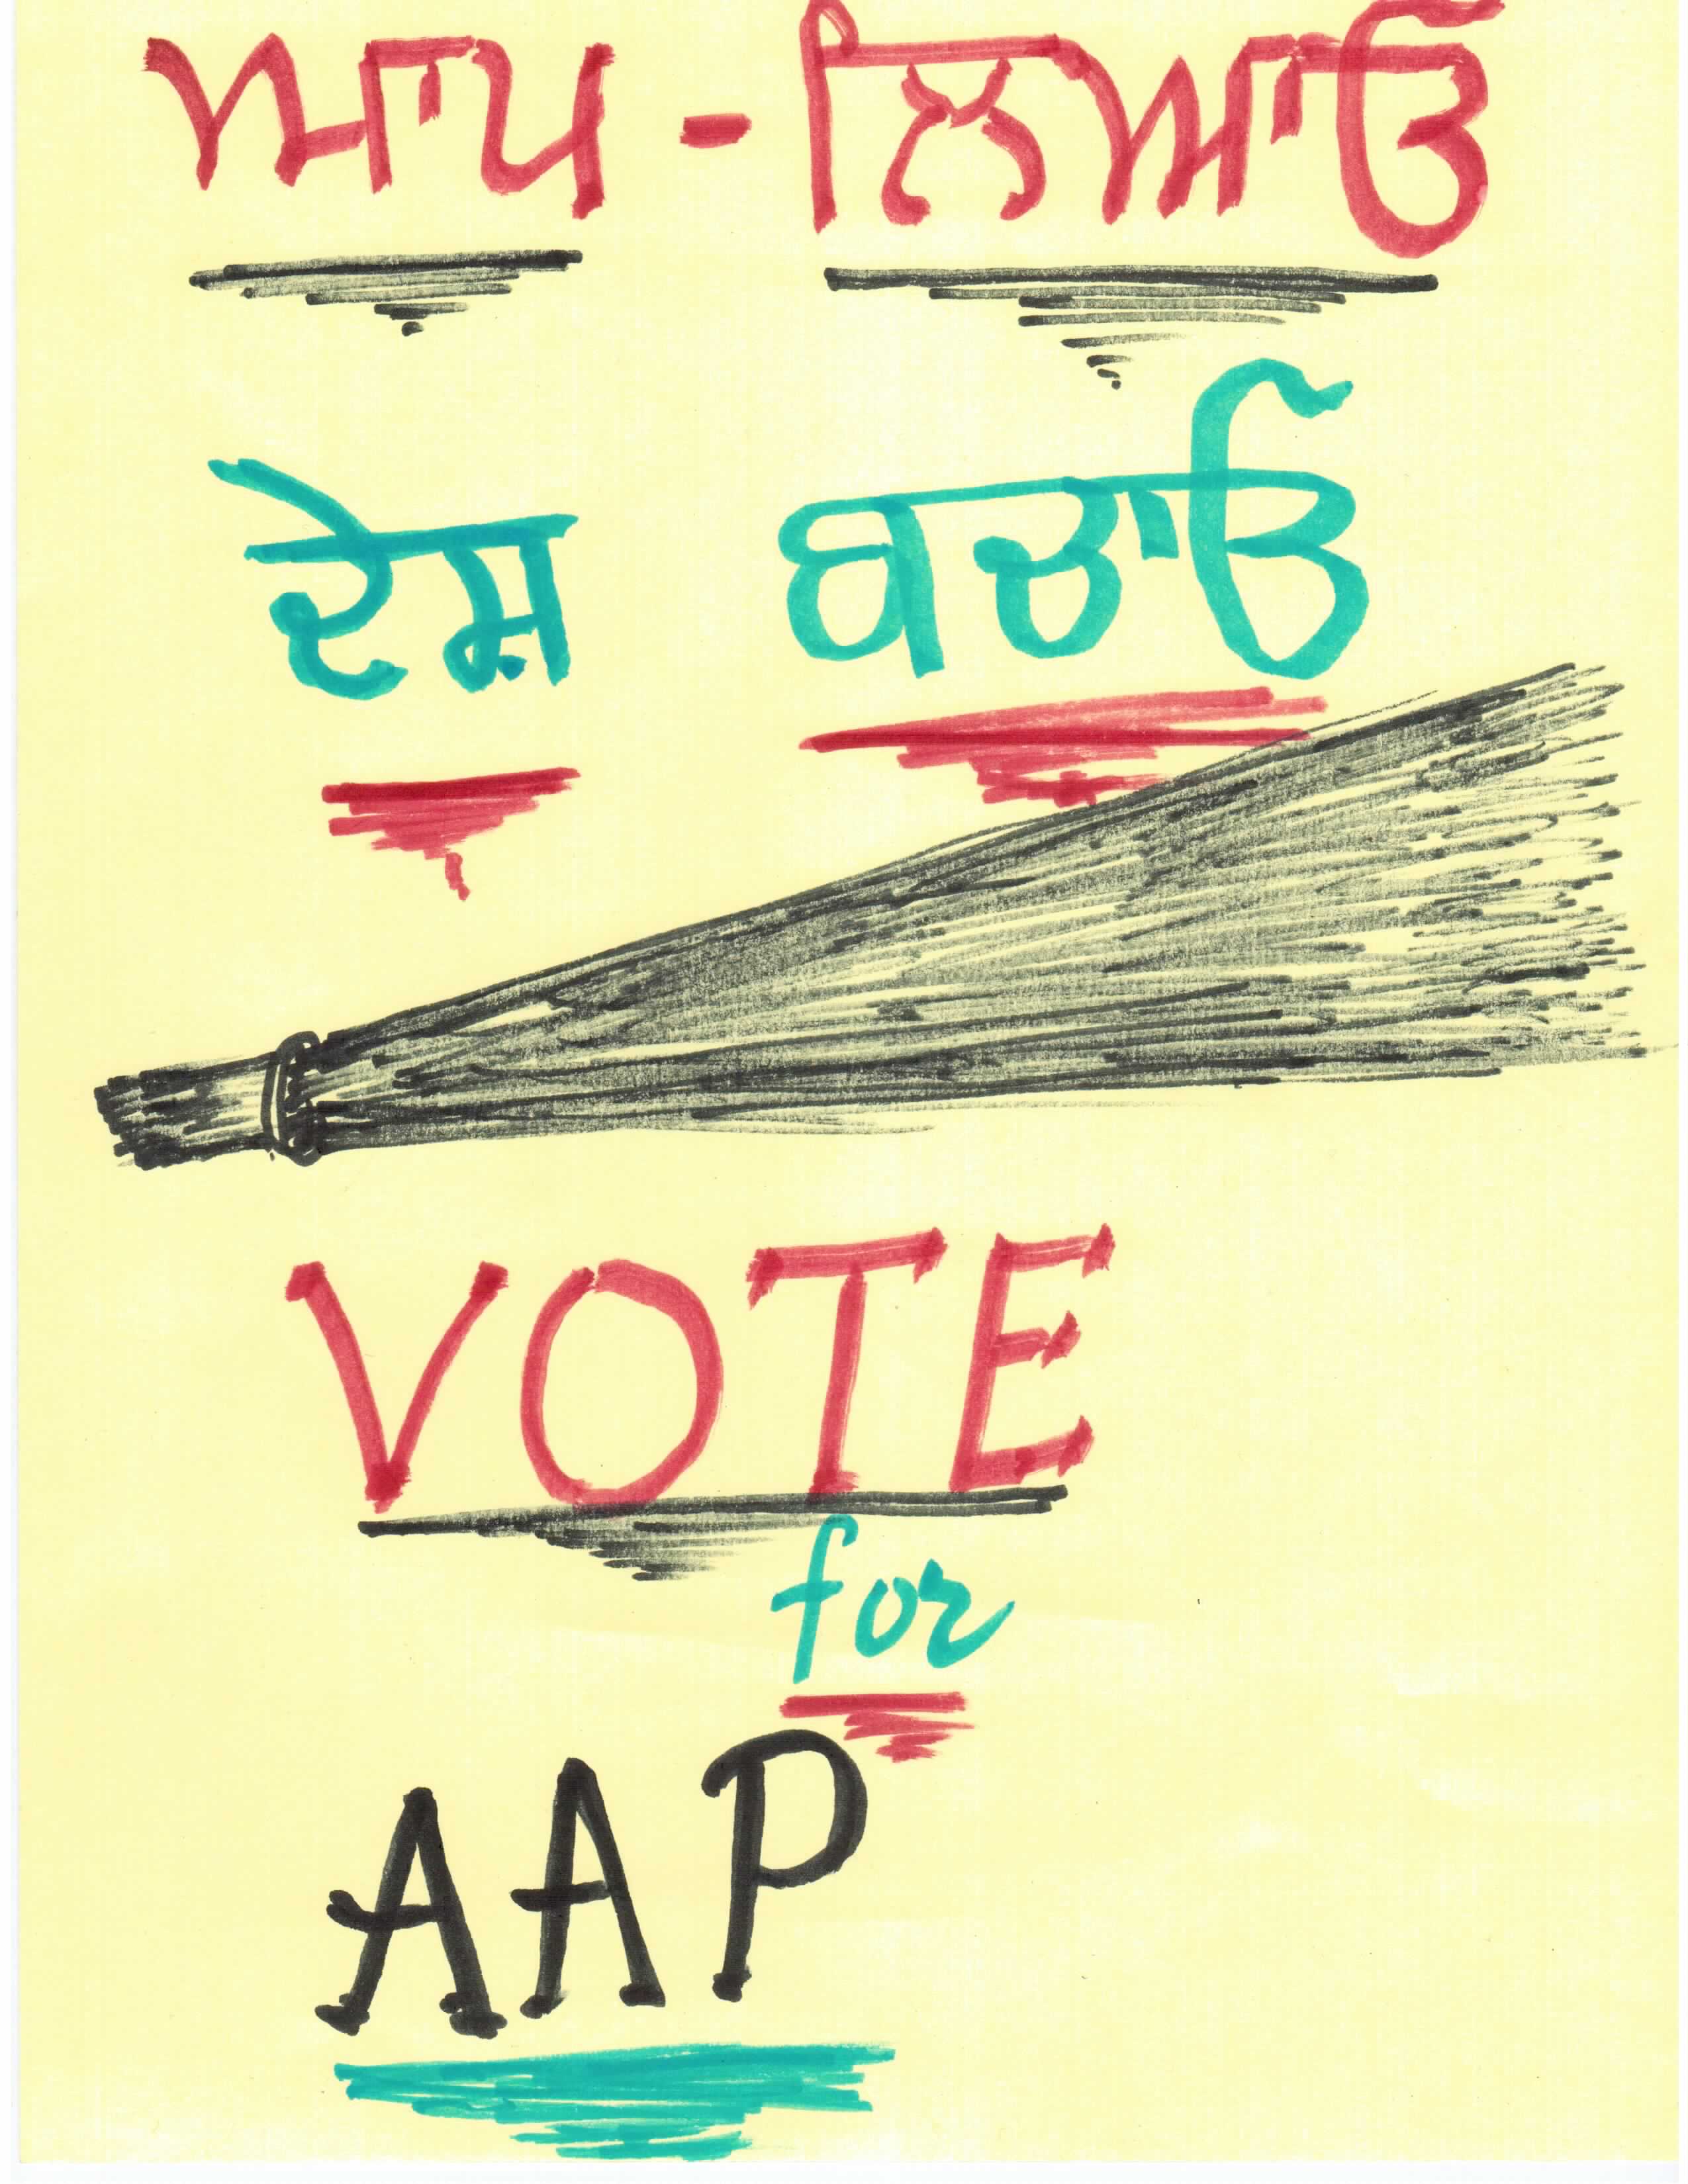 ਆਪ - ਲਿਆਓ
ਦੇਸ਼ ਬਚਾਓ
VOTE
for
AAP